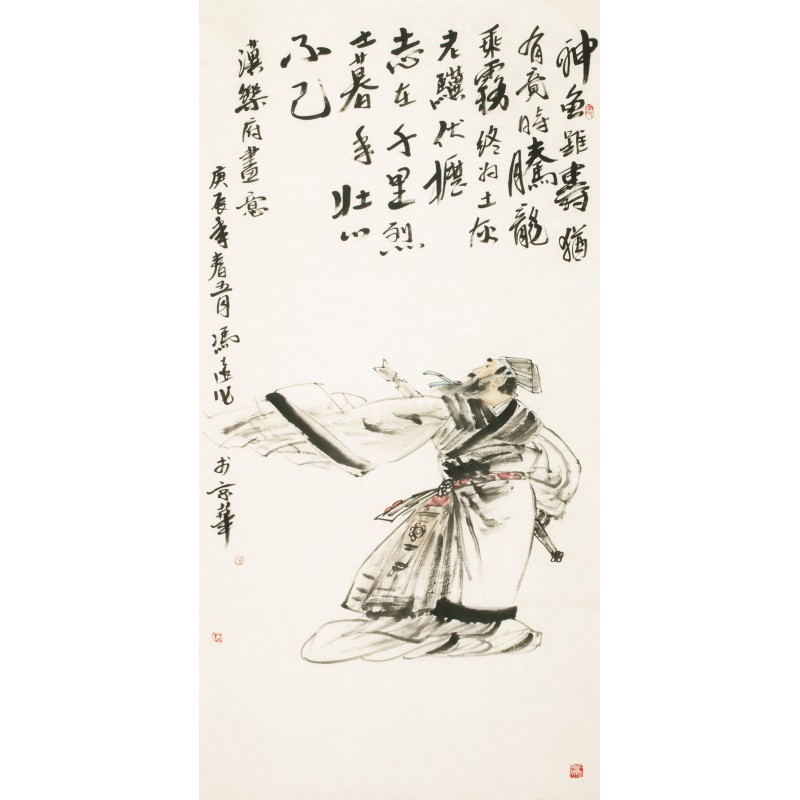 神龟雖壽猶
有竟時騰龍
乘霧終为土灰
老驥伏櫪
志在千里烈
士暮年壯心
不已
漢樂府畫意
庚辰年春五月馮遠作
於京華